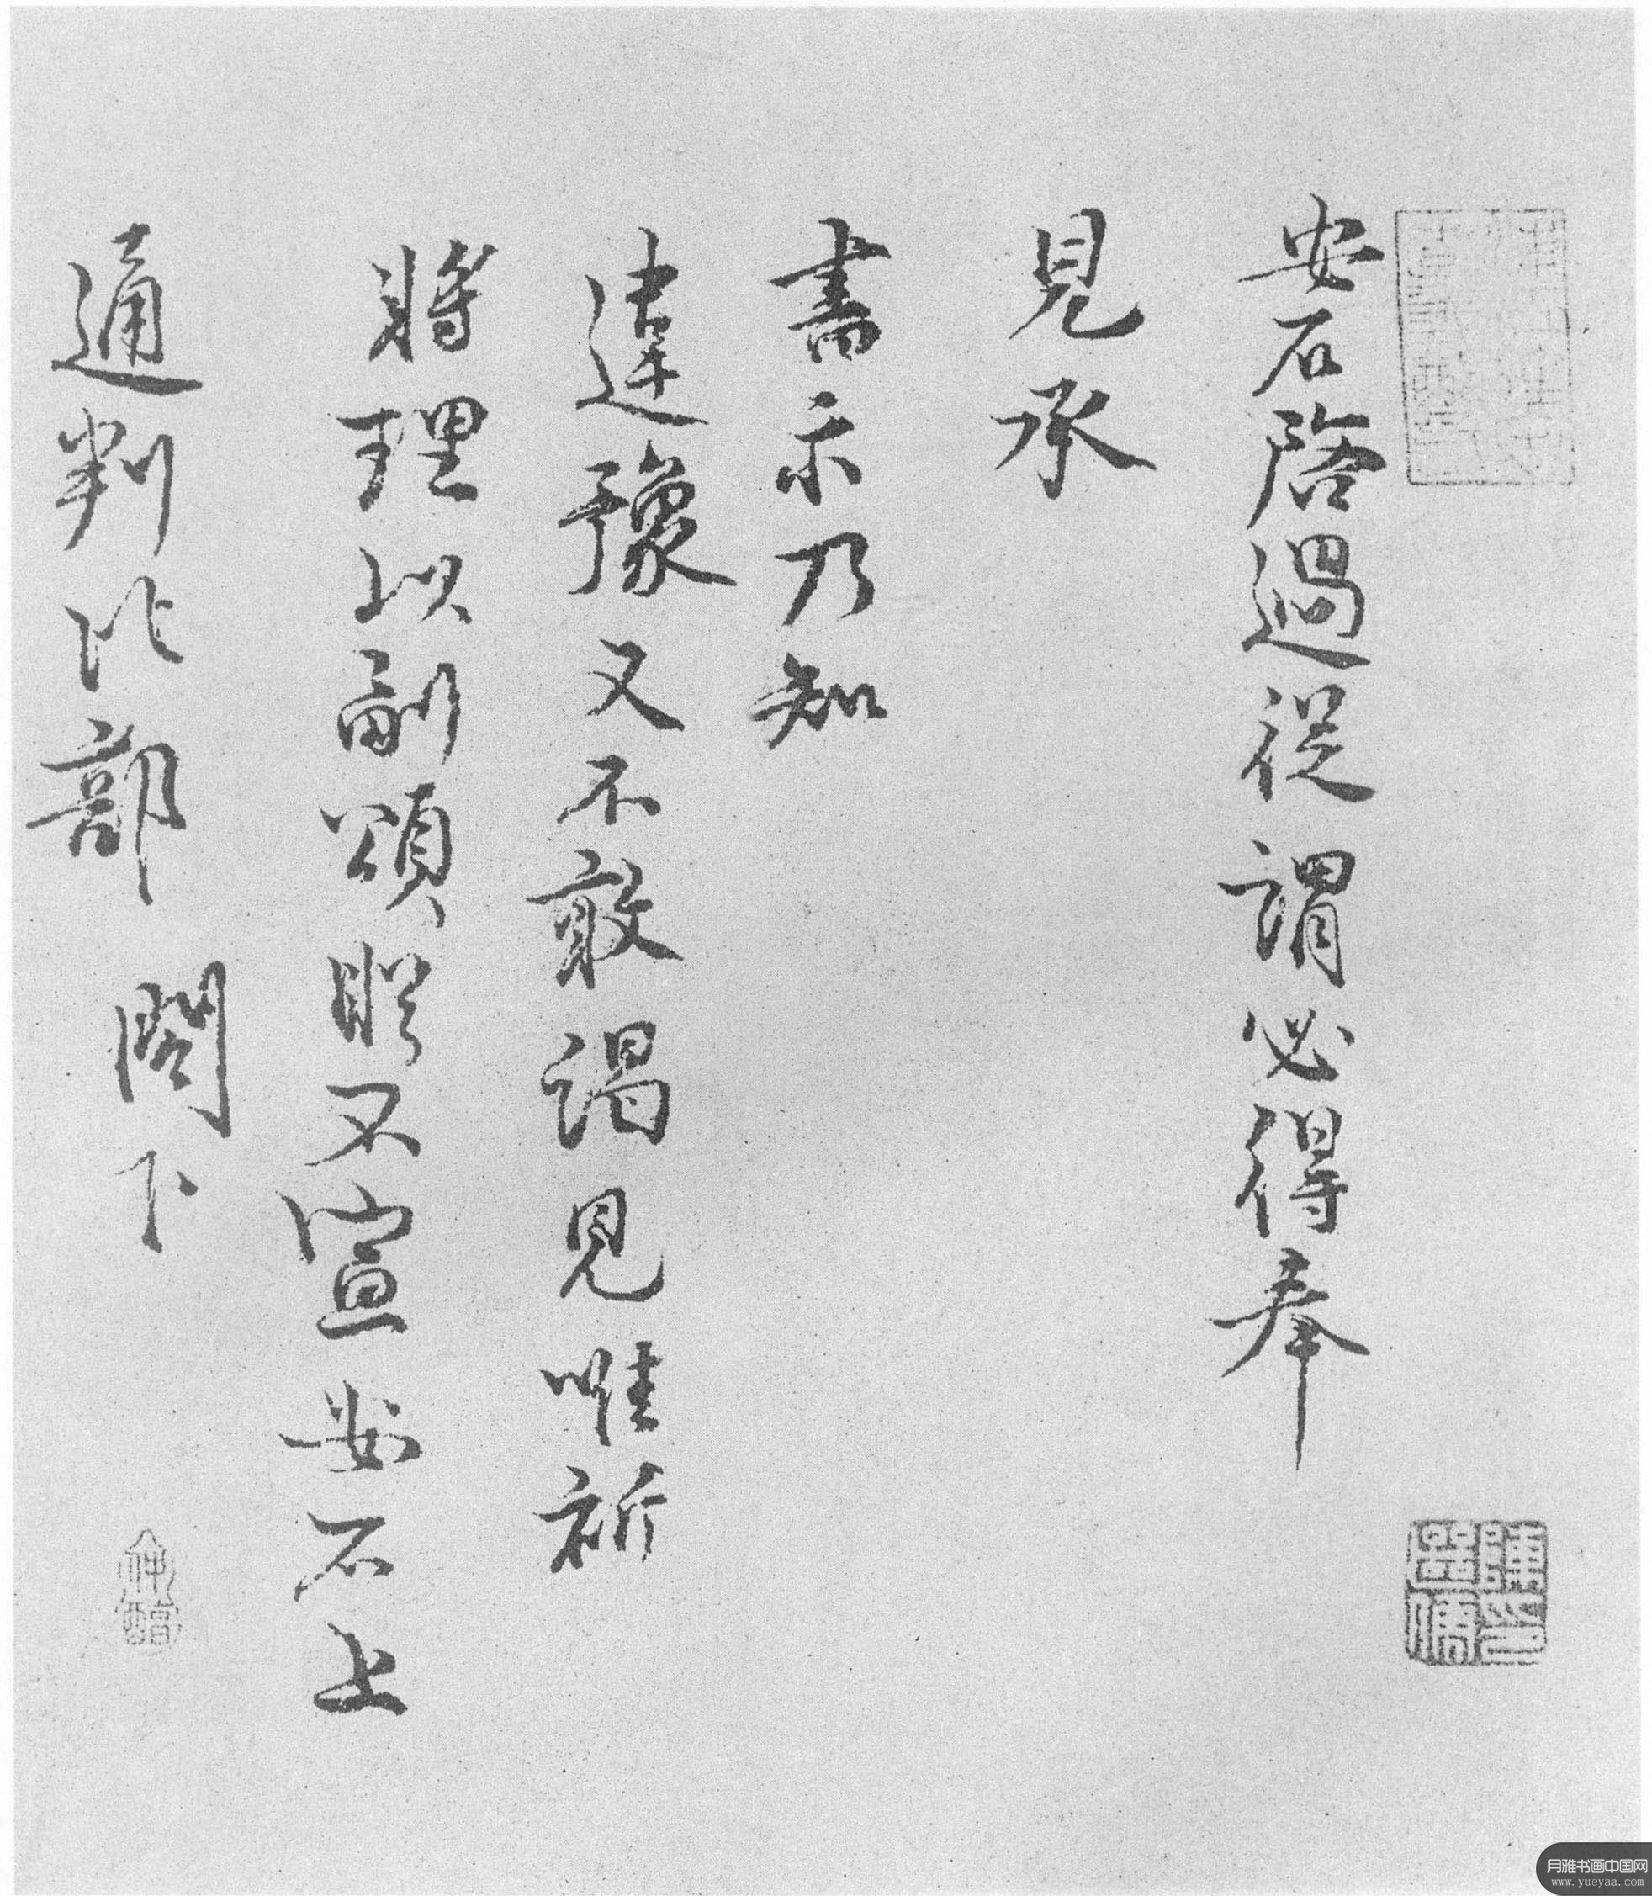 安石啓過從謂必得奉
見承
書示乃知
違豫又不敢謁見唯祈
將理以副頌眤不宣安石上
通判比部閤下
仲醇
月雅书画中国网
www.yueyaa.com